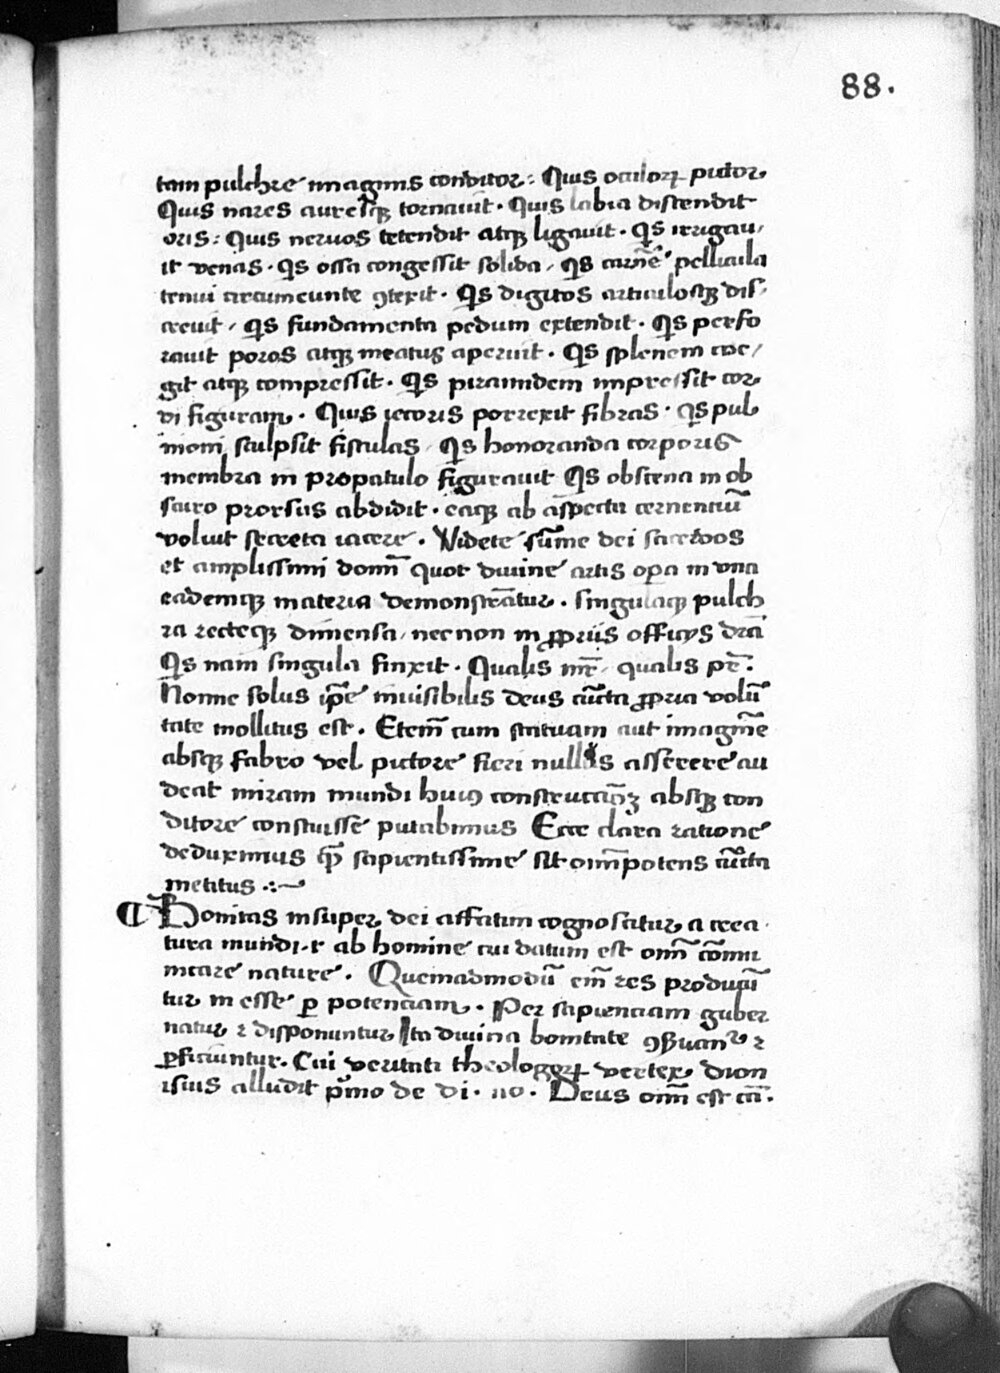 88.
tam pulchre imaginis conditor: Quis oculoꝝ pictor
Quis nares auresqꝫ tornauit. Quis labia distendit
oris: Quis neruos tetendit atqꝫ ligauit. Qs irrigau
it venas. Qs ossa congessit solida, Qs carnē pellicula
tenui circumeunte ꝯtexit. Qs digitos articulosqꝫ dis
creuit, Qs fundamenta pedum extendit. Qs perfo
rauit poros atqꝫ meatus aperuit. Qs splenem coe/
git atqꝫ compressit. Qs piramidem impressit cor
di figuram. Quis iecoris porrexit fibras. Qs pul
moni sculpsit fistulas, Qs honoranda corporis
membra in propatulo figurauit Qs obscena in ob
scuro prorsus abdidit. eaqꝫ ab aspectu cernentiū
voluit secreta iacere. Videte sūme dei sacerdos
et amplissimi domī quot diuine artis opa in vna
eademqꝫ materia demonstrātur. singulaqꝫ pulch
ra recteqꝫ dimensa, necnon in ꝓpriis officijs drā
Qs nam singula finxit. Qualis mr̄, qualis pr̄.
Nonne solus ip̄e inuisibilis deus cūcta ꝓpria volū
tate mollitus est. Etem̄ cum statuam aut imaginē
absqꝫ fabro vel pictore fieri nullus asserere au
deat miram mundi huiꝰ construcciōꝫ absqꝫ con
ditore constuisse putabimus Ecce clara ratione
deduximus ꝙ sapientissime sit omīpotens cūcta
metitus
Bonitas insuper dei affatim cognoscatur a crea
tura mundi. r ab homine cui datum est omī cōmu
nicare nature. Quemadmodū em̄ res producū
tur in esse ꝑ potenciam. Per sapienciam guber
natur ꝛ disponuntur Ita diuina bonitate ꝯßuanᵗ ꝛ
ꝑficiuntur. Cui veritati theologoꝝ vertex dion
isius alludit pͥmo de di. no. Deus omī est cā.